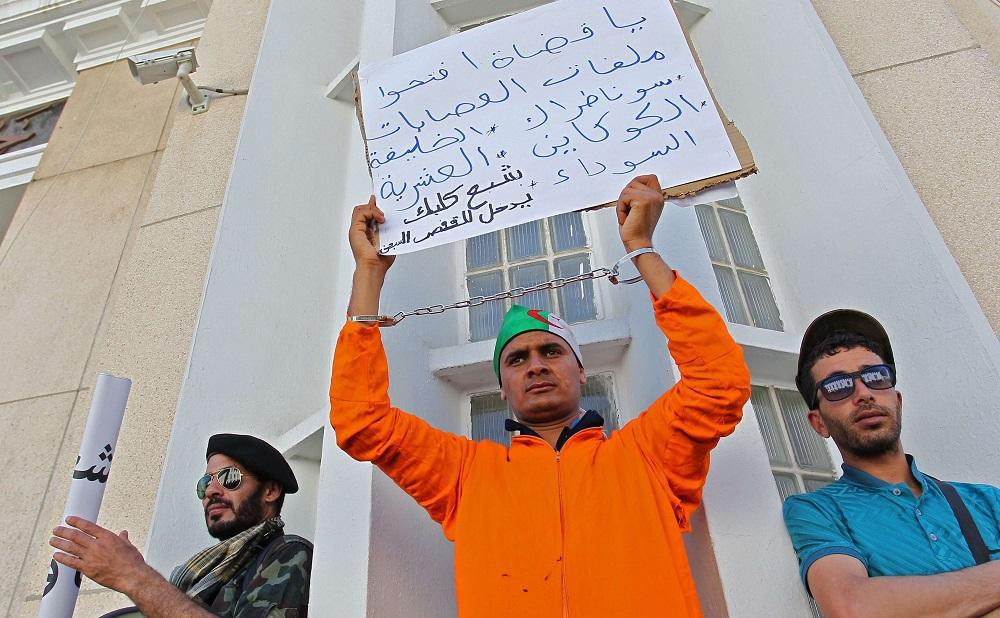 يا قضاة افتحوا
ملفات العصابات
سوناطراك * الخليفة
* الكوكايين * العشرية
السوداء
* شبع كلبك
* يدخل للقفص